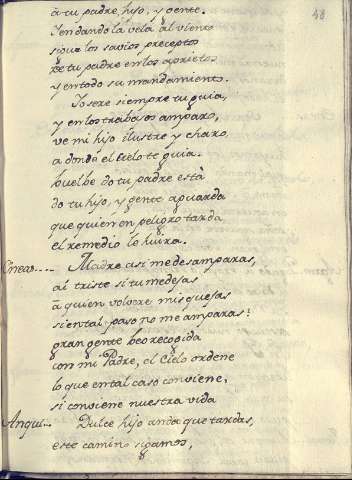 48
â tu padre, hijo, y gente.
Yendando la vela al viento
sigue los savios preceptos
de tu padre en los aprietos
y entodo su mandamiento.
Yo sere siempre tu guia,
y en los trabajos amparo,
ve mi hijo ilustre y charo
a donde el Cielo te guia.
buelbe do tu padre està
do tu hijo, y gente aguarda
que quien en peligro tarda
el remedio lo huira.
Eneas.... Madre asi me desamparas,
ai triste si tu me dejas
â quien volvere mis quejas
si ental paso no me amparas!
gran gente beo recogida
con mi Padre, el Cielo ordene
lo que ental caso conviene,
si conviene nuestra vida
Anqui... Dulce hijo anda que tardas,
este camino sigamos,